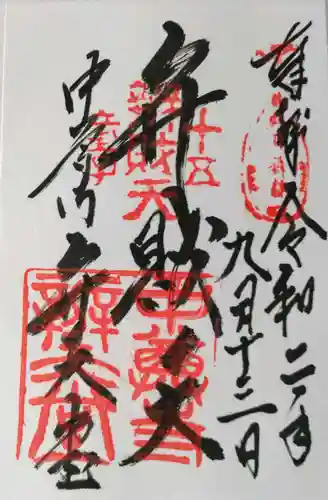 奉拝 令和二年
九月十二日
十五
弁財天
辨財天
童子
中尊寺 弁天堂